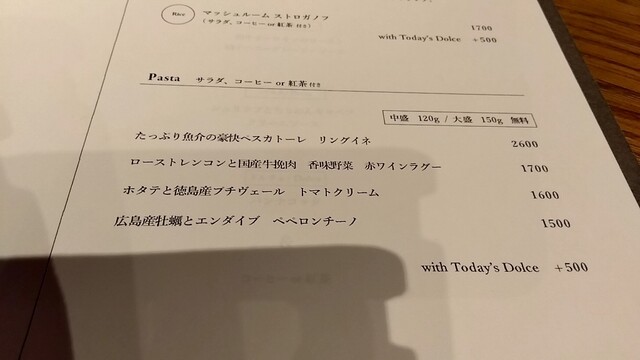 Rice マッシュルーム ストロガノフ
（サラダ、コーヒー or 紅茶 付き） 1700
with Today's Dolce +500
Pasta サラダ、コーヒー or 紅茶 付き
中盛 120g / 大盛 150g 無料
たっぷり魚介の豪快ペスカトーレ リングイネ 2600
ローストレンコンと国産牛挽肉 香味野菜 赤ワインラグー 1700
ホタテと徳島産プチヴェール トマトクリーム 1600
広島産牡蠣とエンダイブ ペペロンチーノ 1500
with Today's Dolce +500